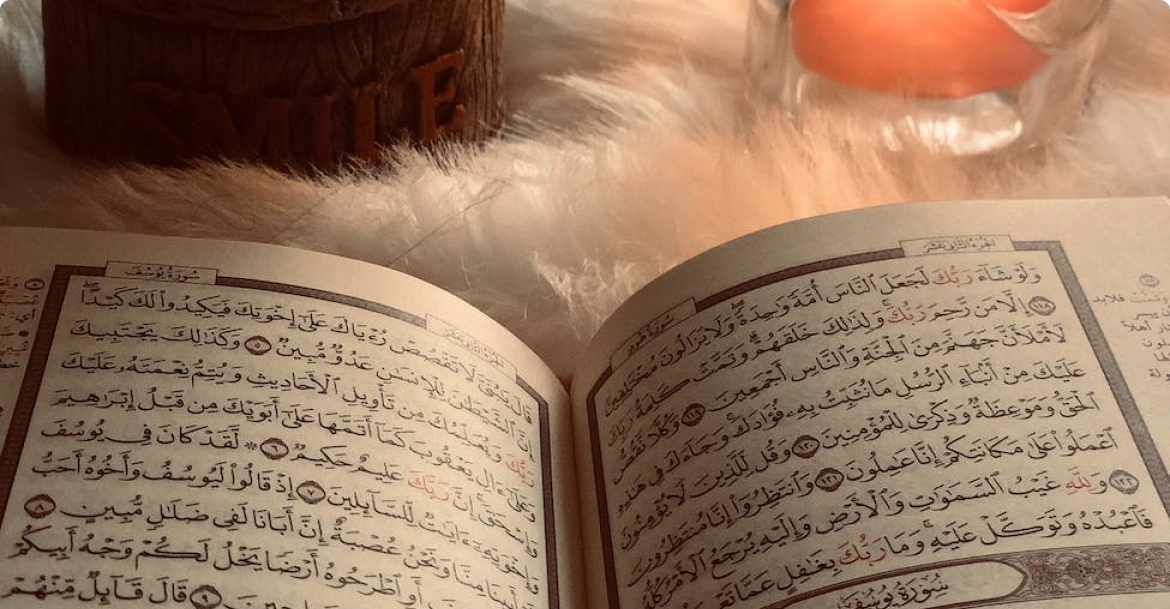 SMILE
الجزء الثاني عشر
سورة هود
وَلَوْ شَآءَ رَبُّكَ لَجَعَلَ ٱلنَّاسَ أُمَّةً وَٰحِدَةً وَلَا يَزَالُونَ مُخْتَلِفِينَ
١١٨ إِلَّا مَن رَّحِمَ رَبُّكَ وَلِذَٰلِكَ خَلَقَهُمْ وَتَمَّتْ كَلِمَةُ رَبِّكَ
لَأَمْلَأَنَّ جَهَنَّمَ مِنَ ٱلْجِنَّةِ وَٱلنَّاسِ أَجْمَعِينَ ١١٩ وَكُلًّا نَّقُصُّ
عَلَيْكَ مِنْ أَنۢبَآءِ ٱلرُّسُلِ مَا نُثَبِّتُ بِهِۦ فُؤَادَكَ وَجَآءَكَ فِي هَٰذِهِ
ٱلْحَقُّ وَمَوْعِظَةٌ وَذِكْرَىٰ لِلْمُؤْمِنِينَ ١٢٠ وَقُل لِّلَّذِينَ لَا يُؤْمِنُونَ
ٱعْمَلُوا۟ عَلَىٰ مَكَانَتِكُمْ إِنَّا عَٰمِلُونَ ١٢١ وَٱنتَظِرُوٓا۟ إِنَّا مُنتَظِرُونَ
١٢٢ وَلِلَّهِ غَيْبُ ٱلسَّمَٰوَٰتِ وَٱلْأَرْضِ وَإِلَيْهِ يُرْجَعُ ٱلْأَمْرُ كُلُّهُۥ
فَٱعْبُدْهُ وَتَوَكَّلْ عَلَيْهِ وَمَا رَبُّكَ بِغَٰفِلٍ عَمَّا
سُورَةُ يُوسُفَ
سورة يوسف
قَالَ يَٰبُنَيَّ لَا تَقْصُصْ رُءْيَاكَ عَلَىٰٓ إِخْوَتِكَ فَيَكِيدُوا۟ لَكَ كَيْدًا
إِنَّ ٱلشَّيْطَٰنَ لِلْإِنسَٰنِ عَدُوٌّ مُّبِينٌ ٥ وَكَذَٰلِكَ يَجْتَبِيكَ
رَبُّكَ وَيُعَلِّمُكَ مِن تَأْوِيلِ ٱلْأَحَادِيثِ وَيُتِمُّ نِعْمَتَهُۥ عَلَيْكَ
وَعَلَىٰٓ ءَالِ يَعْقُوبَ كَمَآ أَتَمَّهَا عَلَىٰٓ أَبَوَيْكَ مِن قَبْلُ إِبْرَٰهِيمَ
وَإِسْحَٰقَ إِنَّ رَبَّكَ عَلِيمٌ حَكِيمٌ ٦ * لَّقَدْ كَانَ فِي يُوسُفَ
وَإِخْوَتِهِۦٓ ءَايَٰتٌ لِّلسَّآئِلِينَ ٧ إِذْ قَالُوا۟ لَيُوسُفُ وَأَخُوهُ أَحَبُّ
إِلَىٰٓ أَبِينَا مِنَّا وَنَحْنُ عُصْبَةٌ إِنَّ أَبَانَا لَفِي ضَلَٰلٍ مُّبِينٍ ٨
أَوِ ٱطْرَحُوهُ أَرْضًا يَخْلُ لَكُمْ وَجْهُ أَبِيكُمْ
٩ قَالَ قَآئِلٌ مِّنْهُمْ